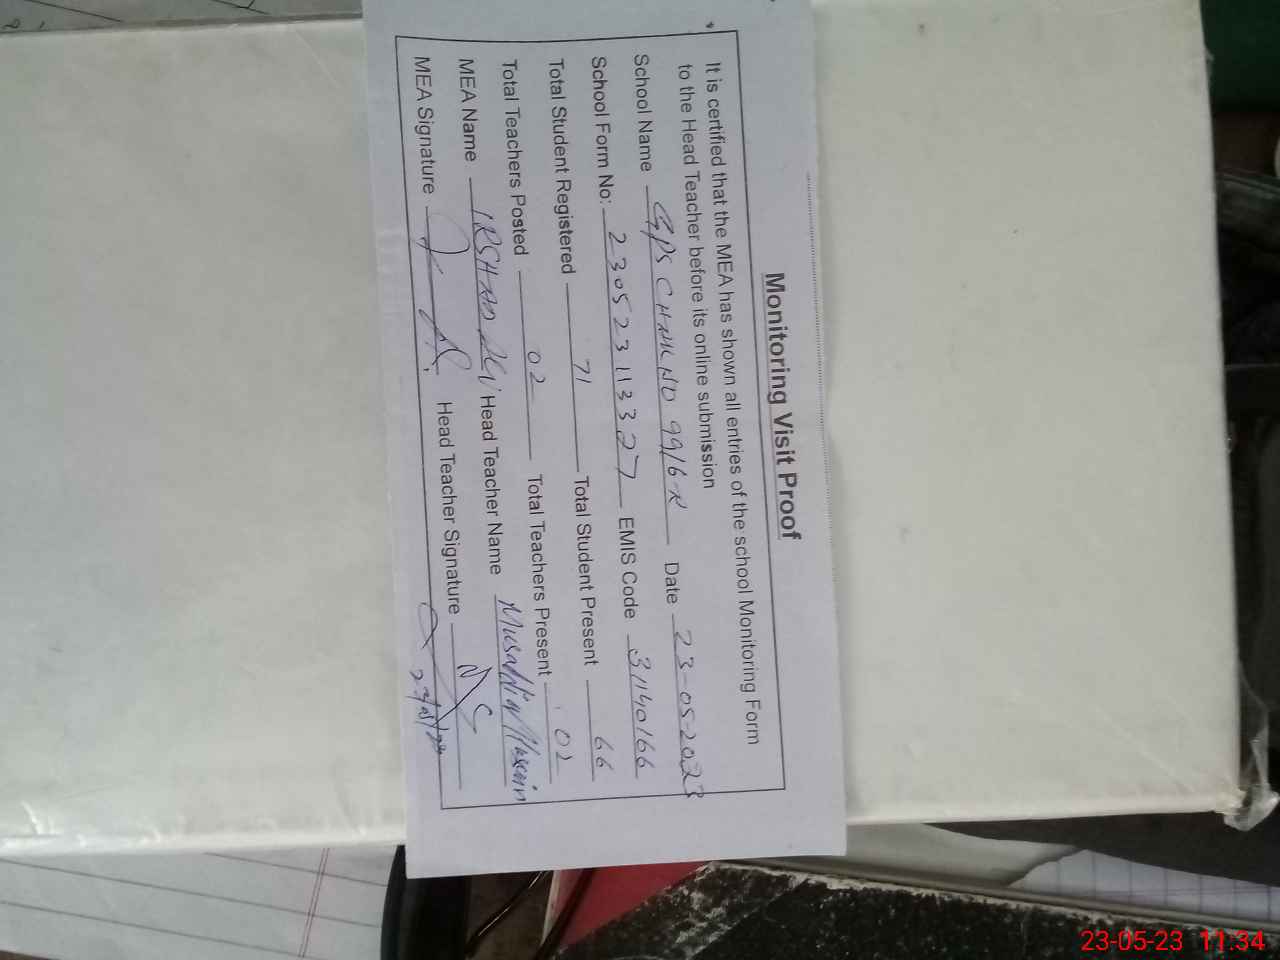 Monitoring Visit Proof
It is certified that the MEA has shown all entries of the school Monitoring Form
to the Head Teacher before its online submission
School Name GPS CHAK NO 99/6-R Date 23-05-2023
School Form No: 230523113327 EMIS Code 31140166
Total Student Registered 71 Total Student Present 66
Total Teachers Posted 02 Total Teachers Present 02
MEA Name IRSHAD Head Teacher Name Hussain
MEA Signature Head Teacher Signature
23-05-23 11:34